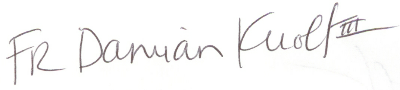 FR Damian Knolt III